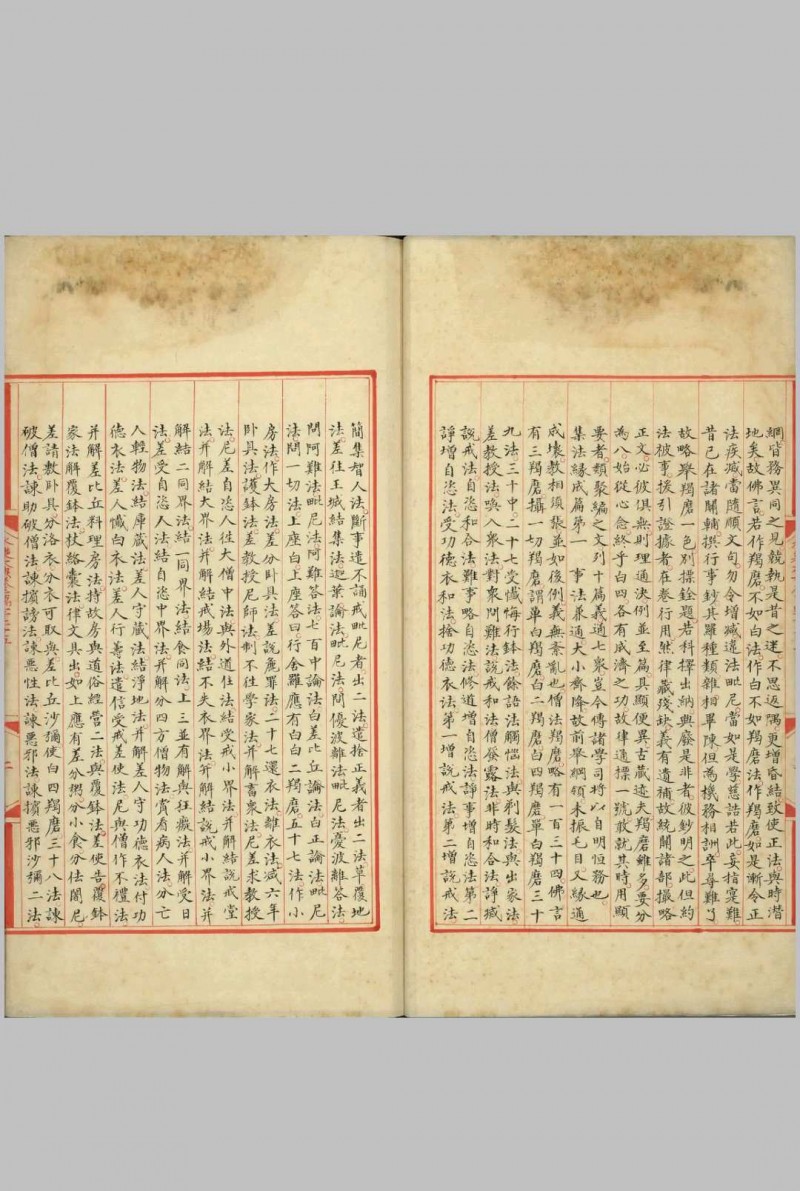 綱皆務異同之見競執是昔之迷不思返隅更增昏結致使正法與時潛
地矣故佛言若作羯磨不如白法作白不如羯磨法作羯磨如是漸令正
法疾滅當隨順文句勿令增減違法毗尼當如是學慈誥若此妄指寔難
昔已在諸關輔撰行事鈔其羅種類雜相畢陳但為機務相訓卒尋難了
故略舉羯磨一色別標銓題若科擇出納興廢是非者彼鈔明之此但約
法被事援引證據者在卷行用然律藏殘缺義有遺補故統關諸部撮略
正文必彼俱無則理通決例並至篇具顯便異古藏迹夫羯磨雖多要分
為八始從心念終乎白四各有成濟之功故律通標一號敢就其時用顯
要者類聚編之文列十篇義通七衆豈今傳諸學司將以自明恒務也
集法緣成篇第一　事法兼通大小齋降故前舉綱領未振毛目又緣通
成壞教相須張並如後例義無紊亂也僧法羯磨略有一百三十四佛言
有三羯磨攝一切羯磨謂單白羯磨白二羯磨白四羯磨單白羯磨三十
九法三十中二十七受懺悔行鉢法餘語法觸惱法與剃髮法與出家法
差教授法喚入衆法對衆問難法說戒和法僧發露法非時和合法諍滅
說戒法自恣和合法難事略自恣法修道增自恣法諍事增自恣法第二
諍增自恣法受功德衣和法捨功德衣法第一增說戒法第二增說戒法
簡集智人法斷事遣不誦毗尼者出二法遣捨正義者出二法草覆地
法差往王城結集法迦葉論法毗尼法問優波離法毗尼法憂波離答法
問阿難法毗尼法阿難答法七百中論法白差比丘論法白正論法毗尼
法問一切法上座白上座答曰行舍羅應有白白二羯磨五十七法作小
房法作大房法差分卧具法差說麁罪法二十七還衣法離衣法減六年
卧具法護鉢法差教授尼師法制不往學家法并解畜衆法尼差求教授
法尼差自恣人往大僧中法與外道住法結受戒小界法并解結說戒堂
法并解結大界法并解結戒場法結不失衣界法并解結說戒小界法并
解結二同界法結一同界法結食同法上三並有解與狂癡法并解受日
法差受自恣人法結自恣中界法并解分四方僧物法賞看病人法分亡
人輕物法結庫藏法差人守藏法結淨地法并解差人守功德衣法付功
德衣法差人懺白衣法差人行善法遣信受戒差使法尼與僧作不禮法
并解差比丘料理房法持故房與道俗經營二法與覆鉢法差使告覆鉢
家法解覆鉢法杖絡囊法律文具出如上應有差分粥分小食分佉闍尼
差請敷卧具分浴衣分衣可取與差比丘沙彌使白四羯磨三十八法諫
破僧法諫助破僧法諫擯謗法諫惡性法諫惡邪法諫擯惡邪沙彌二法